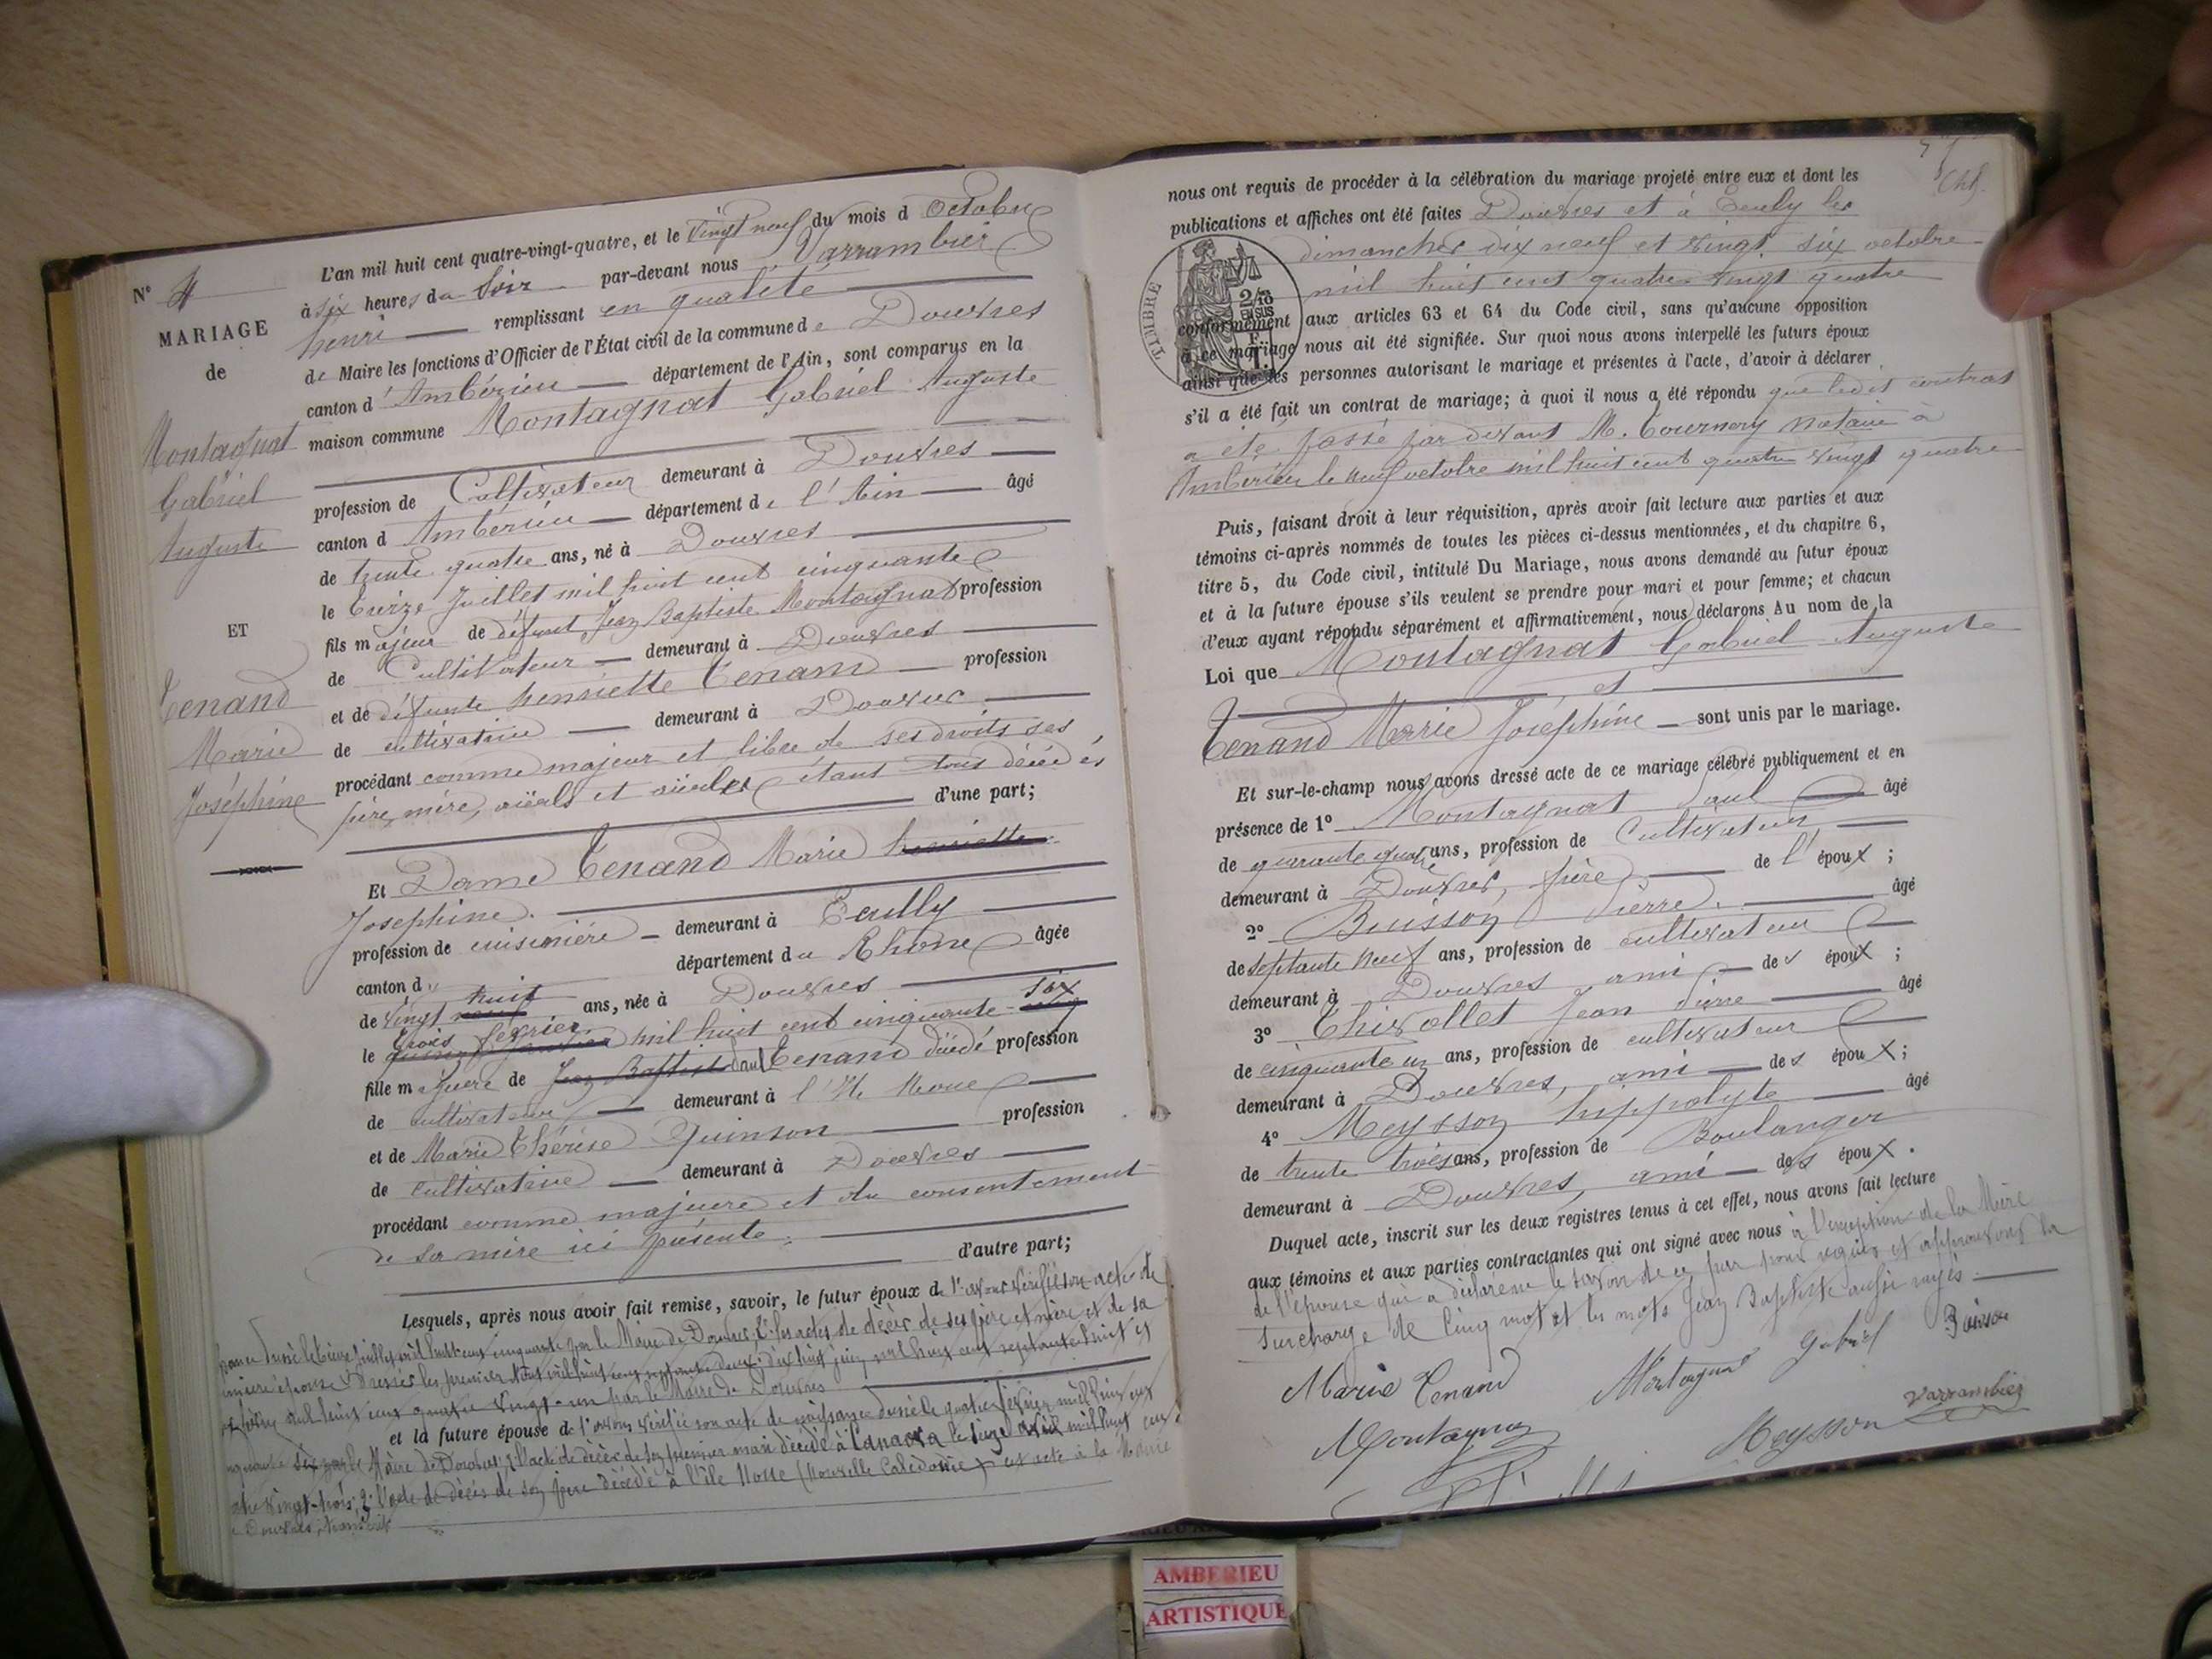 N° 4
MARIAGE
de
Montagnat
Gabriel
Auguste
ET
Tenand
Marie
Joséphine
L'an mil huit cent quatre-vingt-quatre, et le Vingt neuf du mois d Octobre
à six heures du Soir par-devant nous Varrambier
henri remplissant en qualité
de Maire les fonctions d'Officier de l'État civil de la commune de Douvres
canton d'Ambérieu département de l'Ain, sont comparus en la
maison commune Montagnat Gabriel Auguste
profession de Cultivateur demeurant à Douvres
canton d Ambérieu département de l'Ain âgé
de trente quatre ans, né à Douvres
le treize Juillet mil huit cent cinquante
fils majeur de défunt Jean Baptiste Montagnat profession
de Cultivateur demeurant à Douvres
et de défunte henriette Tenand profession
de cultivatrice demeurant à Douvres
procédant comme majeur et libre de ses droits ses
père, mère, aïeuls et aïeules étant tous décédés
d'une part;
Et Dame Tenand Marie henriette
Joséphine.
profession de cuisinière demeurant à Ecully
canton d département du Rhône âgée
de Vingt neuf huit ans, née à Douvres
le trois février mil huit cent cinquante six
fille majeure de Jean Baptiste Paul Tenand décédé profession
de cultivateur demeurant à l'Ile Noue
et de Marie Thérèse Quinson profession
de cultivatrice demeurant à Douvres
procédant comme majeure et du consentement
de sa mère ici présente.
d'autre part;
Lesquels, après nous avoir fait remise, savoir, le futur époux de 1° avons vérifié son acte de
le treize juillet mil huit cent cinquante par le Maire de Douvres 2° les actes de décès de ses père et mère et de sa
mil huit cent quatre vingt-un par le Maire de Douvres
et la future épouse de 1° avons vérifié son acte de naissance dressé le quatre février mil huit cent
cinquante six par le Maire de Douvres; 2° l'acte de décès de son premier mari décédé à le seize mil huit cent
quatre vingt-trois; 3° l'acte de décès de son père décédé à l'île (Nouvelle Calédonie) cet acte à la Mairie
de Douvres, transcrit
nous ont requis de procéder à la célébration du mariage projeté entre eux et dont les
publications et affiches ont été faites Douvres et à Ecully les
dimanches dix neuf et vingt six octobre
mil huit cent quatre vingt quatre
TIMBRE
2/10 EN SUS
F. 1.
conformément aux articles 63 et 64 du Code civil, sans qu'aucune opposition
à ce mariage nous ait été signifiée. Sur quoi nous avons interpellé les futurs époux
ainsi que les personnes autorisant le mariage et présentes à l'acte, d'avoir à déclarer
s'il a été fait un contrat de mariage; à quoi il nous a été répondu que ledit contrat
a été passé par devant M. Tournery notaire à
Ambérieu le neuf octobre mil huit cent quatre vingt quatre
Puis, faisant droit à leur réquisition, après avoir fait lecture aux parties et aux
témoins ci-après nommés de toutes les pièces ci-dessus mentionnées, et du chapitre 6,
titre 5, du Code civil, intitulé Du Mariage, nous avons demandé au futur époux
et à la future épouse s'ils veulent se prendre pour mari et pour femme; et chacun
d'eux ayant répondu séparément et affirmativement, nous déclarons Au nom de la
Loi que Montagnat Gabriel Auguste
et
Tenand Marie Joséphine sont unis par le mariage.
Et sur-le-champ nous avons dressé acte de ce mariage célébré publiquement et en
présence de 1° Montagnat Paul âgé
de quarante quatre ans, profession de Cultivateur
demeurant à Douvres, frère de l'époux;
2° Buisson Pierre. âgé
de septante neuf ans, profession de cultivateur
demeurant à Douvres ami des époux;
3° Chivollet Jean Pierre âgé
de cinquante un ans, profession de cultivateur
demeurant à Douvres, ami des époux;
4° Meysson hyppolyte âgé
de trente trois ans, profession de Boulanger
demeurant à Douvres, ami des époux.
Duquel acte, inscrit sur les deux registres tenus à cet effet, nous avons fait lecture
aux témoins et aux parties contractantes qui ont signé avec nous à l'exception de la Mère
de l'épouse qui a déclaré ne le savoir de ce par nous requise et approuvons la
surcharge de cinq mots et les mots Jean Baptiste aussi rayés.
Marie Tenand Montagnat Gabriel Buisson
Montagnat Meysson Varrambier
AMBERIEU
ARTISTIQUE